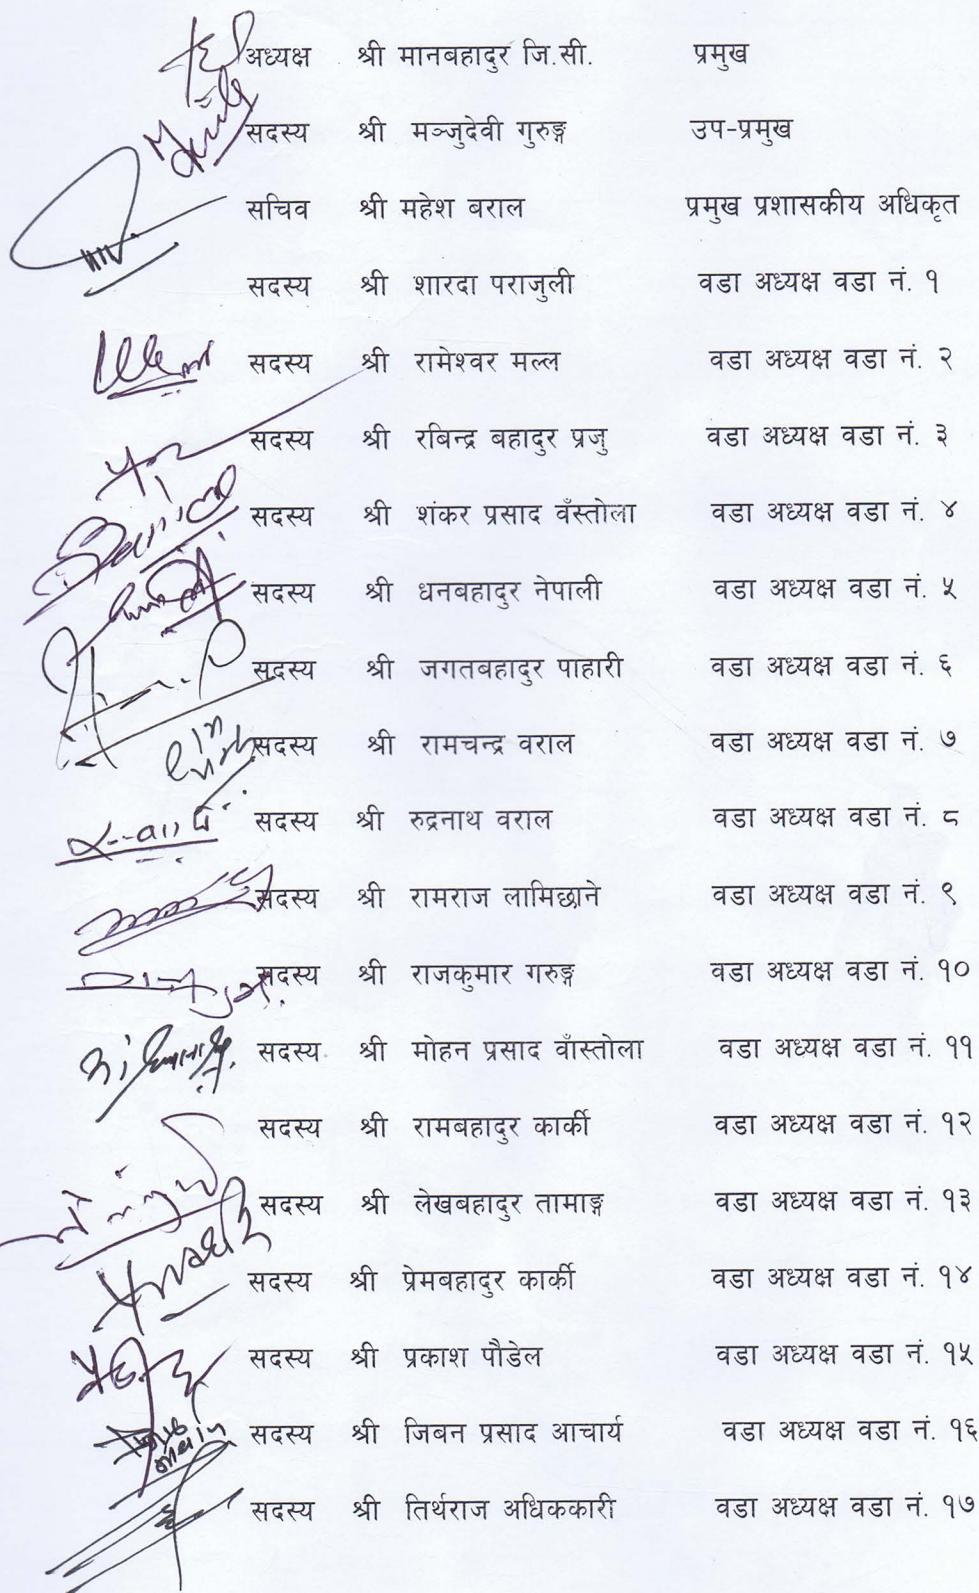 अध्यक्ष श्री मानबहादुर जि.सी. प्रमुख
सदस्य श्री मञ्जुदेवी गुरुङ्ग उप-प्रमुख
सचिव श्री महेश बराल प्रमुख प्रशासकीय अधिकृत
सदस्य श्री शारदा पराजुली वडा अध्यक्ष वडा नं. १
सदस्य श्री रामेश्वर मल्ल वडा अध्यक्ष वडा नं. २
सदस्य श्री रबिन्द्र बहादुर प्रजु वडा अध्यक्ष वडा नं. ३
सदस्य श्री शंकर प्रसाद वँस्तोला वडा अध्यक्ष वडा नं. ४
सदस्य श्री धनबहादुर नेपाली वडा अध्यक्ष वडा नं. ५
सदस्य श्री जगतबहादुर पाहारी वडा अध्यक्ष वडा नं. ६
सदस्य श्री रामचन्द्र वराल वडा अध्यक्ष वडा नं. ७
सदस्य श्री रुद्रनाथ वराल वडा अध्यक्ष वडा नं. ८
सदस्य श्री रामराज लामिछाने वडा अध्यक्ष वडा नं. ९
सदस्य श्री राजकुमार गरुङ्ग वडा अध्यक्ष वडा नं. १०
सदस्य श्री मोहन प्रसाद वाँस्तोला वडा अध्यक्ष वडा नं. ११
सदस्य श्री रामबहादुर कार्की वडा अध्यक्ष वडा नं. १२
सदस्य श्री लेखबहादुर तामाङ्ग वडा अध्यक्ष वडा नं. १३
सदस्य श्री प्रेमबहादुर कार्की वडा अध्यक्ष वडा नं. १४
सदस्य श्री प्रकाश पौडेल वडा अध्यक्ष वडा नं. १५
सदस्य श्री जिबन प्रसाद आचार्य वडा अध्यक्ष वडा नं. १६
सदस्य श्री तिर्थराज अधिककारी वडा अध्यक्ष वडा नं. १७